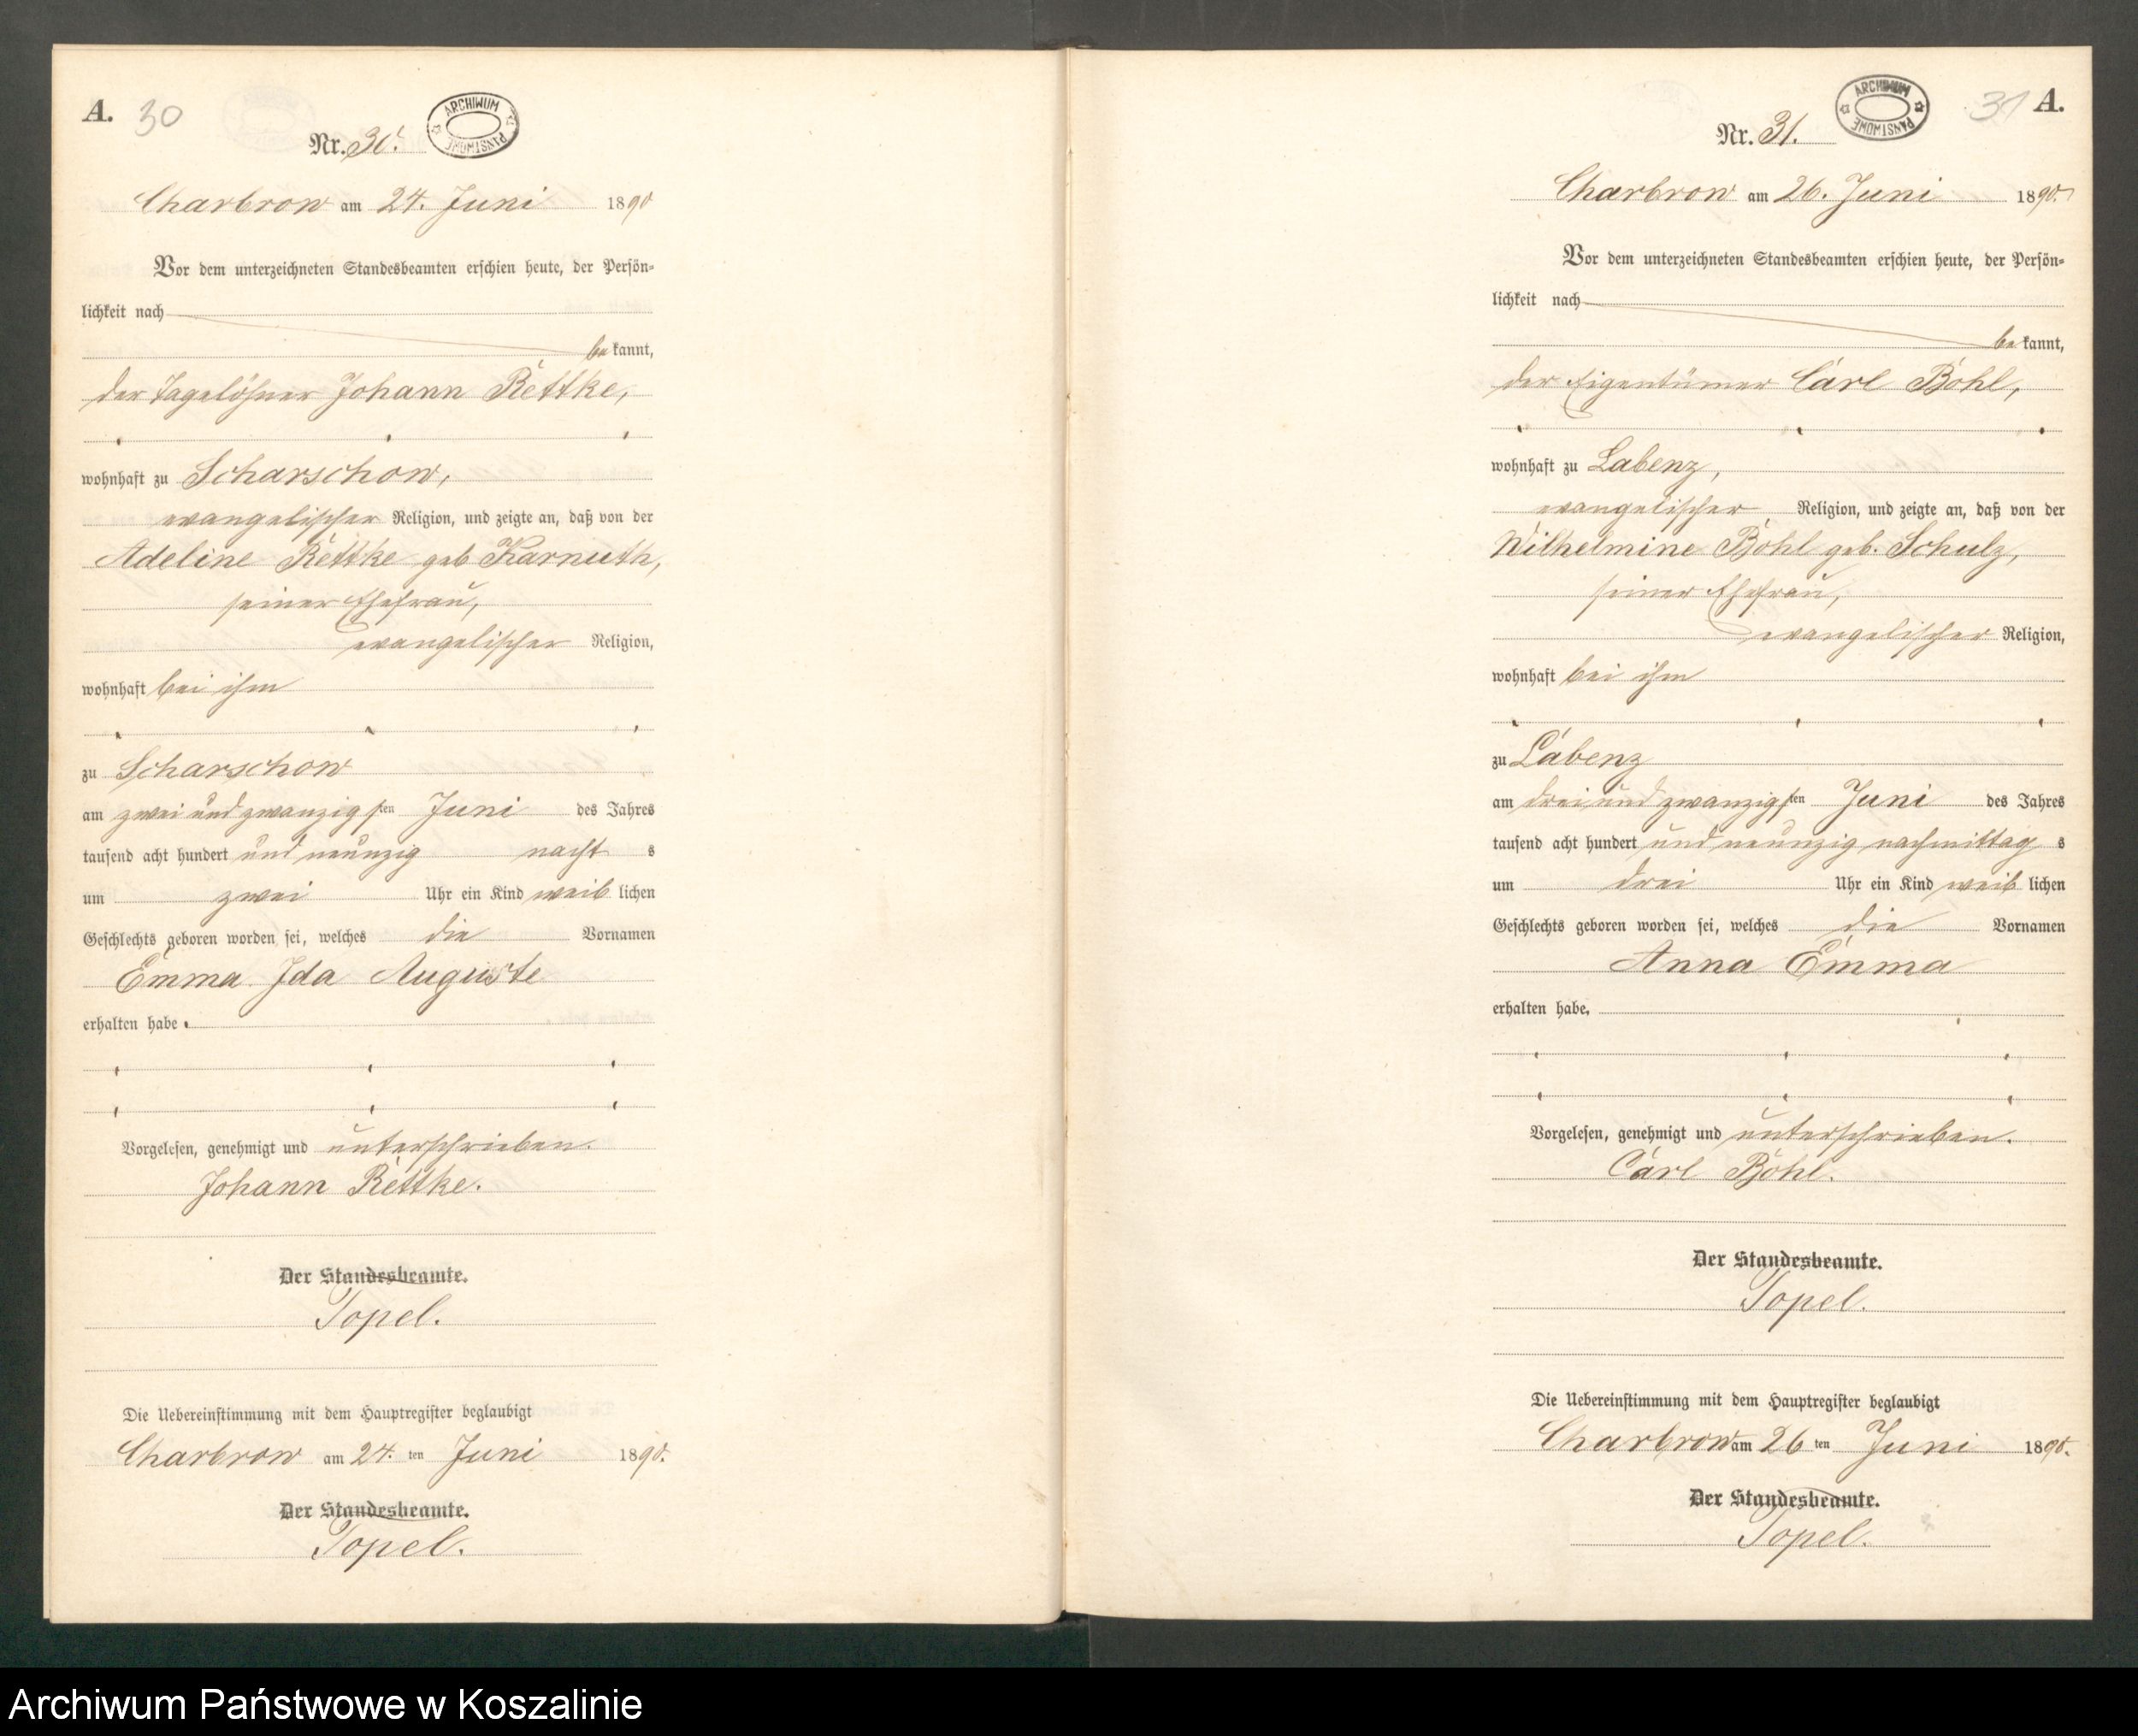 A. 30
Nr. 30.
ARCHIWUM PAŃSTWOWE
Charbrow am 24. Juni 1890
Vor dem unterzeichneten Standesbeamten erschien heute, der Persön-
lichkeit nach
bekannt,
der Tagelöhner Johann Rettke,
wohnhaft zu Scharschow,
evangelischer Religion, und zeigte an, daß von der
Adeline Rettke geb Karnuth,
seiner Ehefrau,
evangelischer Religion,
wohnhaft bei ihm
zu Scharschow
am zwei und zwanzigsten Juni des Jahres
tausend acht hundert und neunzig nachts
um zwei Uhr ein Kind weiblichen
Geschlechts geboren worden sei, welches die Vornamen
Emma Ida Auguste
erhalten habe.
Vorgelesen, genehmigt und unterschrieben.
Johann Rettke.
Der Standesbeamte.
Topel.
Die Uebereinstimmung mit dem Hauptregister beglaubigt
Charbrow am 24. ten Juni 1890.
Der Standesbeamte.
Topel.
31 A.
Nr. 31.
ARCHIWUM PAŃSTWOWE
Charbrow am 26. Juni 1890.
Vor dem unterzeichneten Standesbeamten erschien heute, der Persön-
lichkeit nach
bekannt,
der Eigentümer Carl Böhl,
wohnhaft zu Labenz,
evangelischer Religion, und zeigte an, daß von der
Wilhelmine Böhl geb. Schulz,
seiner Ehefrau,
evangelischer Religion,
wohnhaft bei ihm
zu Labenz
am drei und zwanzigsten Juni des Jahres
tausend acht hundert und neunzig nachmittags
um drei Uhr ein Kind weiblichen
Geschlechts geboren worden sei, welches die Vornamen
Anna Emma
erhalten habe.
Vorgelesen, genehmigt und unterschrieben.
Carl Böhl.
Der Standesbeamte.
Topel.
Die Uebereinstimmung mit dem Hauptregister beglaubigt
Charbrow am 26 ten Juni 1890.
Der Standesbeamte.
Topel.
Archiwum Państwowe w Koszalinie